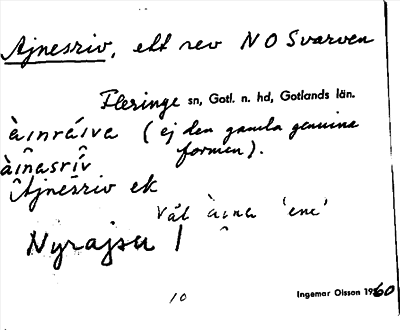 Ajnesriv, ett rev NO Svarven
Fleringe sn, Gotl. n. hd, Gotlands län.
àınráıva (ej den gamla genuina
formen).
àı̂nasrı̂v
Ajnesriv ek
Väl àına 'ene'
Nyrajsu /
10
Ingemar Olsson 1960